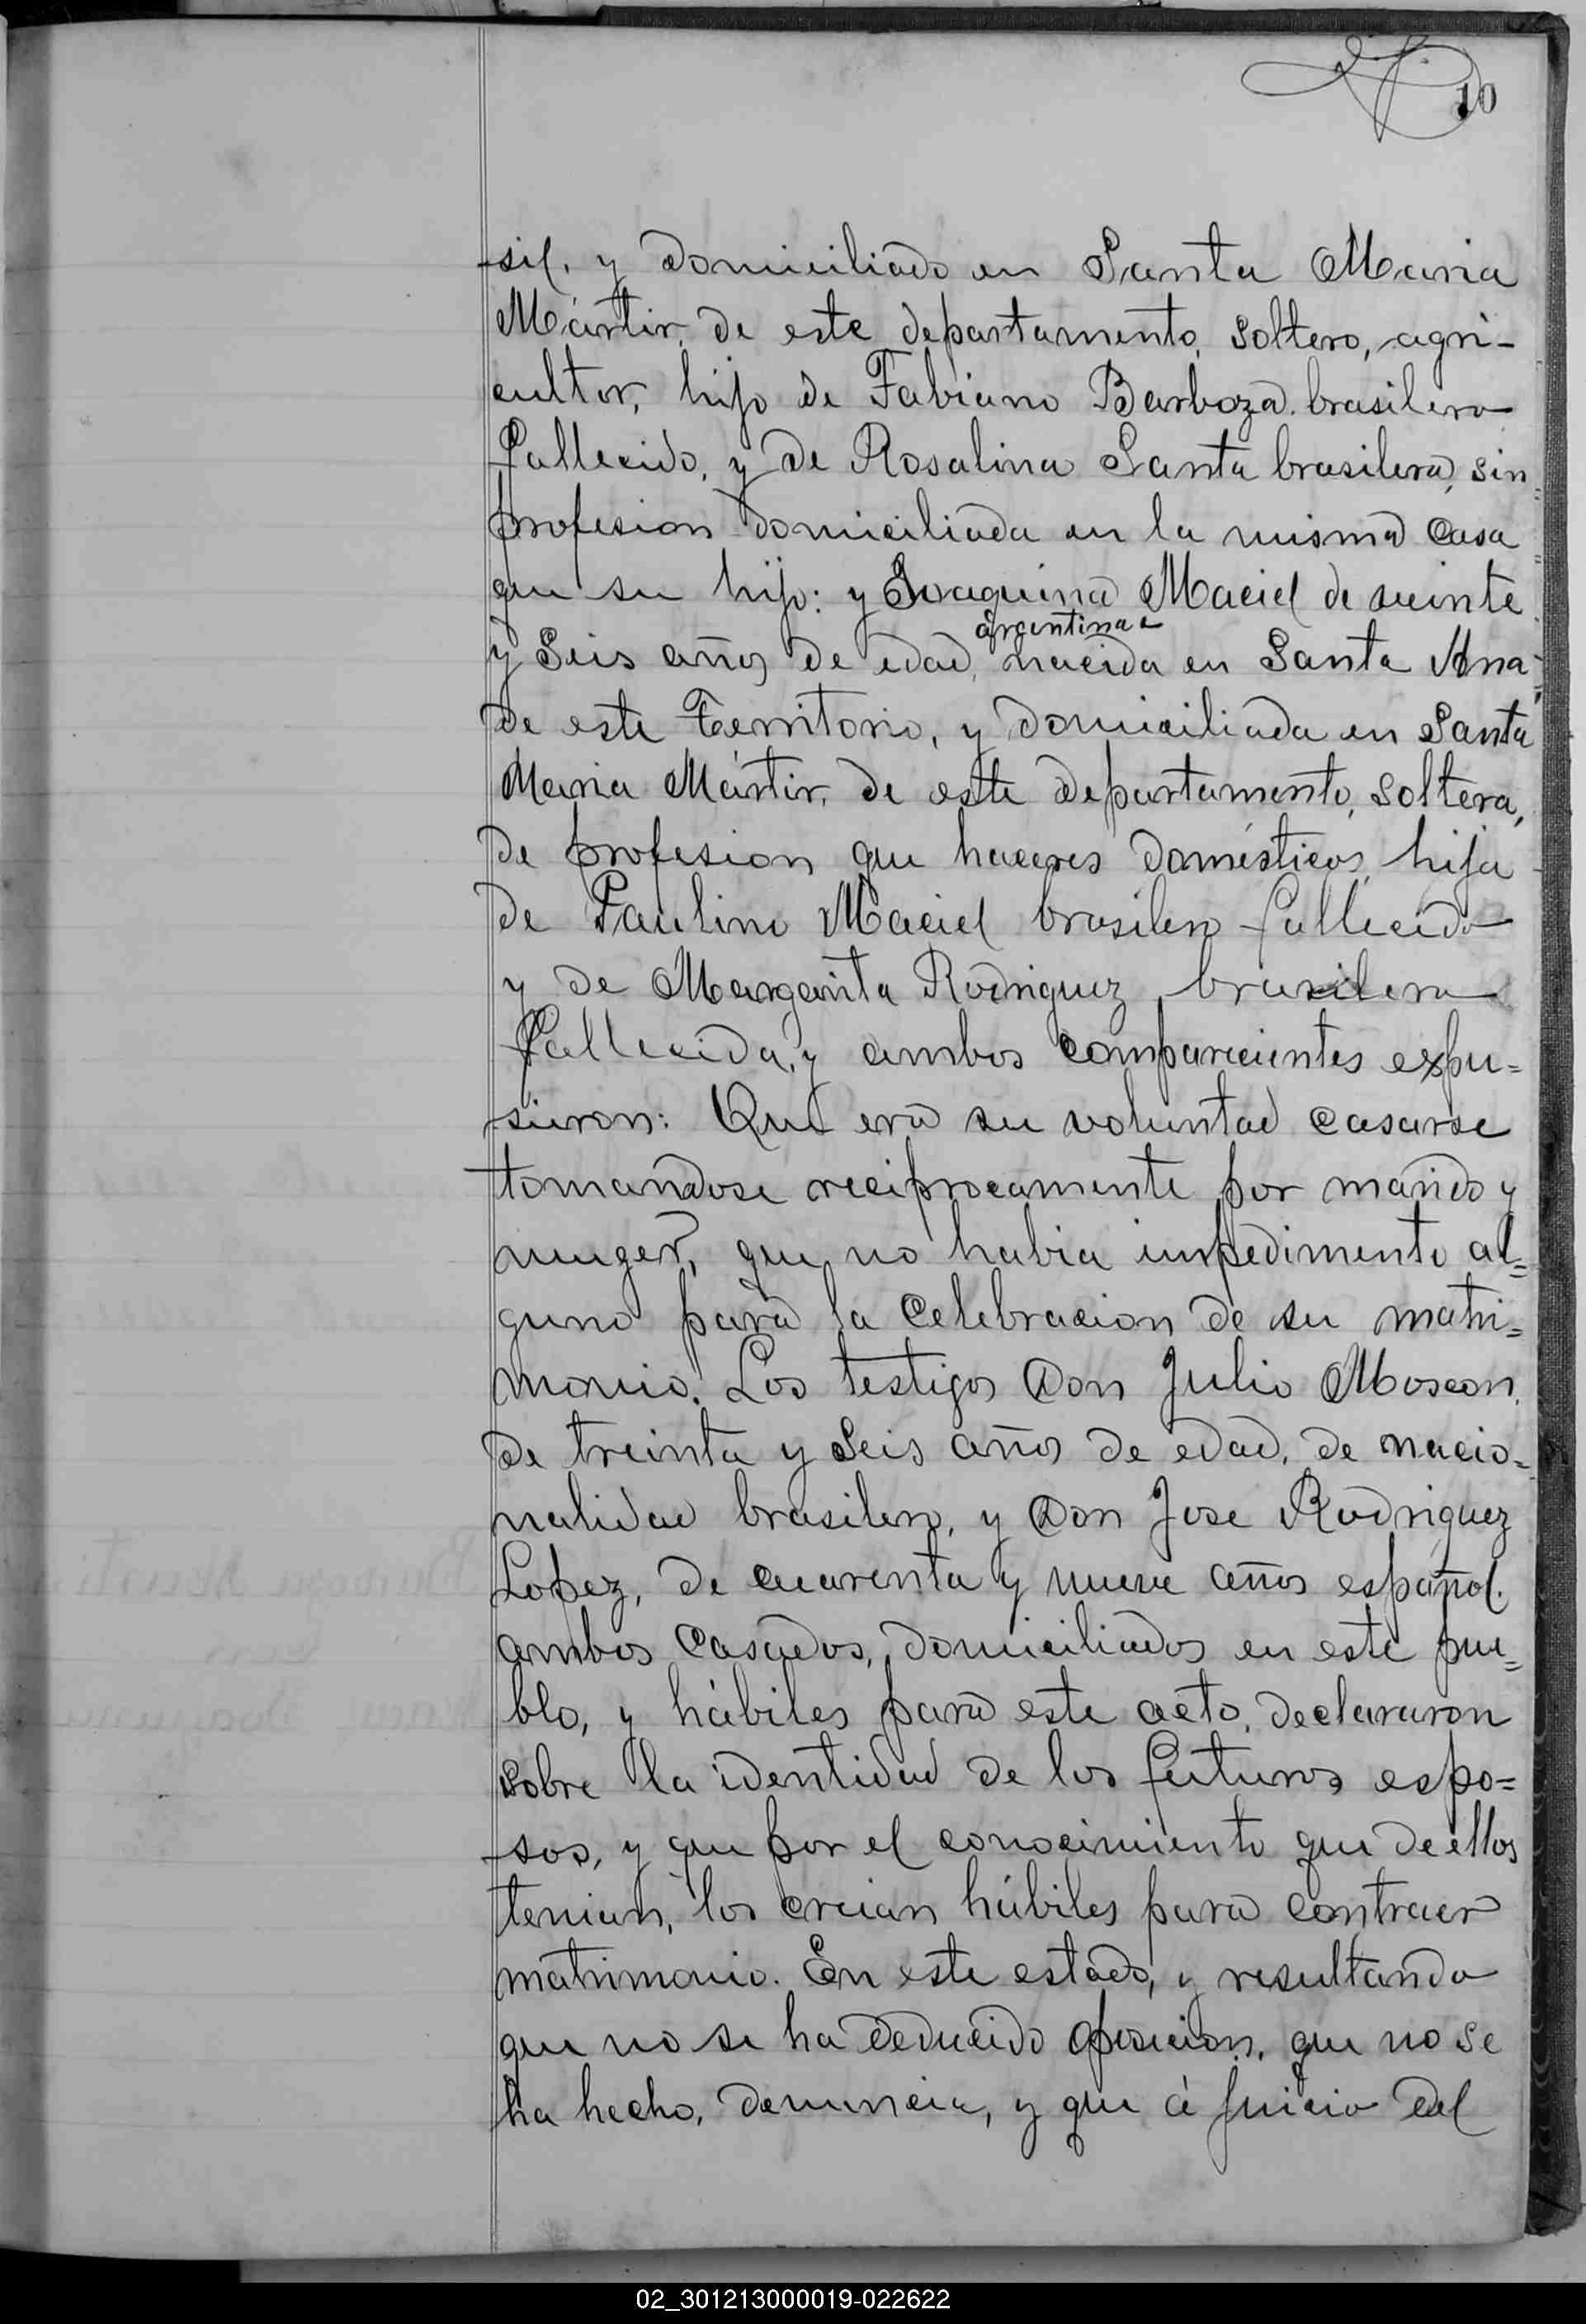 10
sil. y domiciliado en Santa Maria
Mártir, de este departamento, soltero, agri-
cultor, hijo de Fabiano Barboza. brasilero
fallecido, y de Rosalina Santa brasilera, sin
profesion domiciliada en la misma casa
que su hijo: y Joaquina Maciel de veinte
argentina
y seis años de edad, nacida en Santa Ana
de este Territorio, y domiciliada en Santa
Maria Mártir, de este departamento, soltera,
de profesion que haceres domésticos, hija
de Paulino Maciel brasilero fallecido
y de Margarita Rodriguez, brasilera
fallecida, y ambos comparecientes expu=
sieron: Que era su voluntad casarse
tomandose reciprocamente por marido y
muger, que no habia impedimento al=
guno para la celebracion de su matri=
monio. Los testigos Don Julio Moscon,
de treinta y seis años de edad, de nacio=
nalidad brasilero, y Don Jose Rodriguez
Lopez, de cuarenta y nueve años español.
ambos casados, domiciliados en este pue=
blo, y hábiles para este acto, declararon
sobre la identidad de los futuros espo=
sos, y que por el conocimiento que de ellos
tenian, los creian hábiles para contraer
matrimonio. En este estado, y resultando
que no se ha deducido oposicion, que no se
ha hecho, denuncia, y que á juicio del
02_301213000019-022622